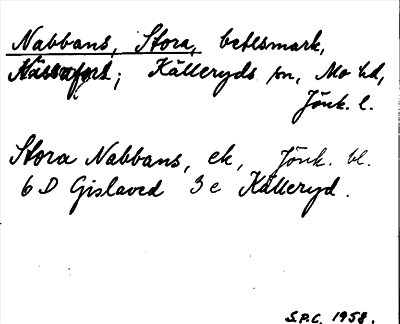 Nabbans, Stora, betesmark,
Källeryds sn, Mo hd,
Jönk. l.
Stora Nabbans, ek, Jönk. bl.
6 D Gislaved 3 e Källeryd.
S.P.C. 1958.